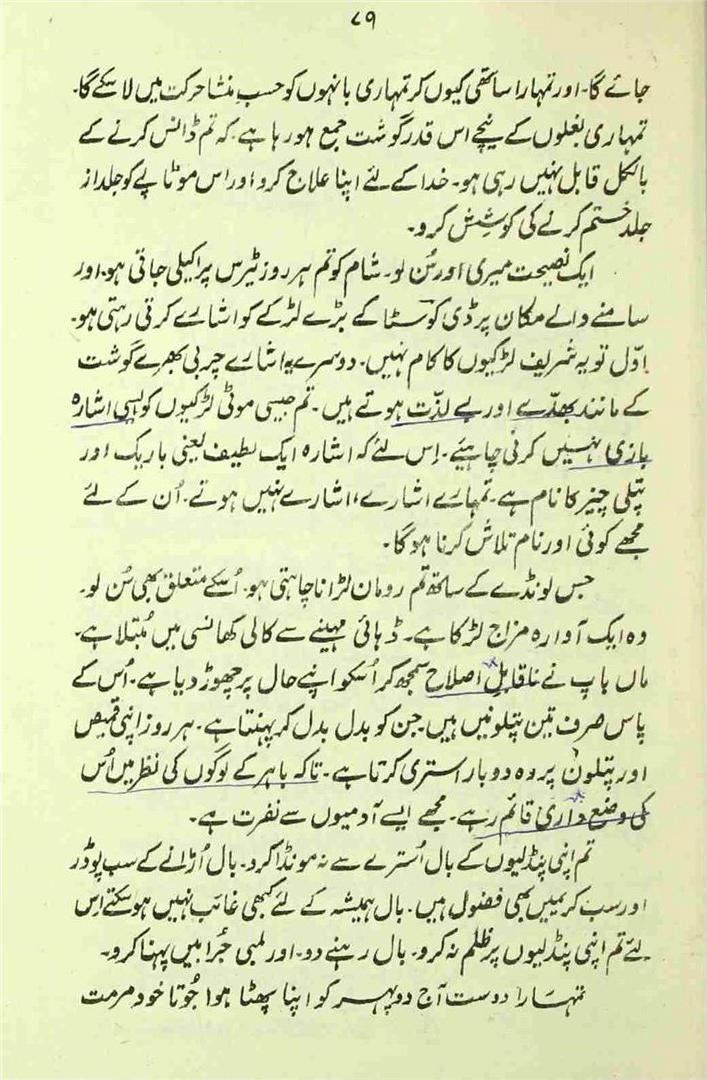 ۸۹
جائے گا۔ اور تمہارا ساتھی کیوں کر تمہاری بانہوں کو حسبِ منشا حرکت میں لا سکے گا۔
تمہاری بغلوں کے نیچے اس قدر گوشت جمع ہو رہا ہے کہ تم ڈانس کرنے کے
بالکل قابل نہیں رہی ہو۔ خدا کے لئے اپنا علاج کرو اور اس موٹاپے کو جلد از
جلد ختم کرنے کی کوشش کرو۔
ایک نصیحت میری اور سُن لو۔ شام کو تم ہر روز ٹیرس پر اکیلی جاتی ہو۔ اور
سامنے والے مکان پر ڈی کوسٹا کے بڑے لڑکے کو اشارے کرتی رہتی ہو۔
اوّل تو یہ شریف لڑکیوں کا کام نہیں۔ دوسرے یہ اشارے چربی بھرے گوشت
کے مانند بھدّے اور بے لذّت ہوتے ہیں۔ تم جیسی موٹی لڑکیوں کو ایسی اشارہ
بازی نہیں کرنی چاہیئے۔ اِس لئے کہ اشارہ ایک لطیف یعنی باریک اور
پتلی چیز کا نام ہے۔ تمہارے اشارے، اشارے نہیں ہوتے۔ اُن کے لئے
مجھے کوئی اور نام تلاش کرنا ہو گا۔
جس لونڈے کے ساتھ تم رومان لڑانا چاہتی ہو۔ اُسکے متعلق بھی سُن لو۔
وہ ایک آوارہ مزاج لڑکا ہے۔ ڈہائی مہینے سے کالی کھانسی میں مُبتلا ہے۔
ماں باپ نے ناقابلِ اصلاح سمجھ کر اُسکو اپنے حال پر چھوڑ دیا ہے۔ اُس کے
پاس صرف تین پتلونیں ہیں جن کو بدل بدل کر پہنتا ہے۔ ہر روز اپنی قمیض
اور پتلون پر وہ دو بار استری کرتا ہے۔ تاکہ باہر کے لوگوں کی نظر میں اُس
کی وضع داری قائم رہے۔ مجھے ایسے آدمیوں سے نفرت ہے۔
تم اپنی پنڈلیوں کے بال اُسترے سے نہ مونڈا کرو۔ بال اُڑانے کے سب پوڈر
اور سب کریمیں بھی فضول ہیں۔ بال ہمیشہ کے لئے کبھی غائب نہیں ہو سکتے اِس
لئے تم اپنی پنڈلیوں پر ظلم نہ کرو۔ بال رہنے دو۔ اور لمبی جُرابیں پہنا کرو۔
تمہارا دوست آج دوپہر کو اپنا پھٹا ہوا جُوتا خود مرمت